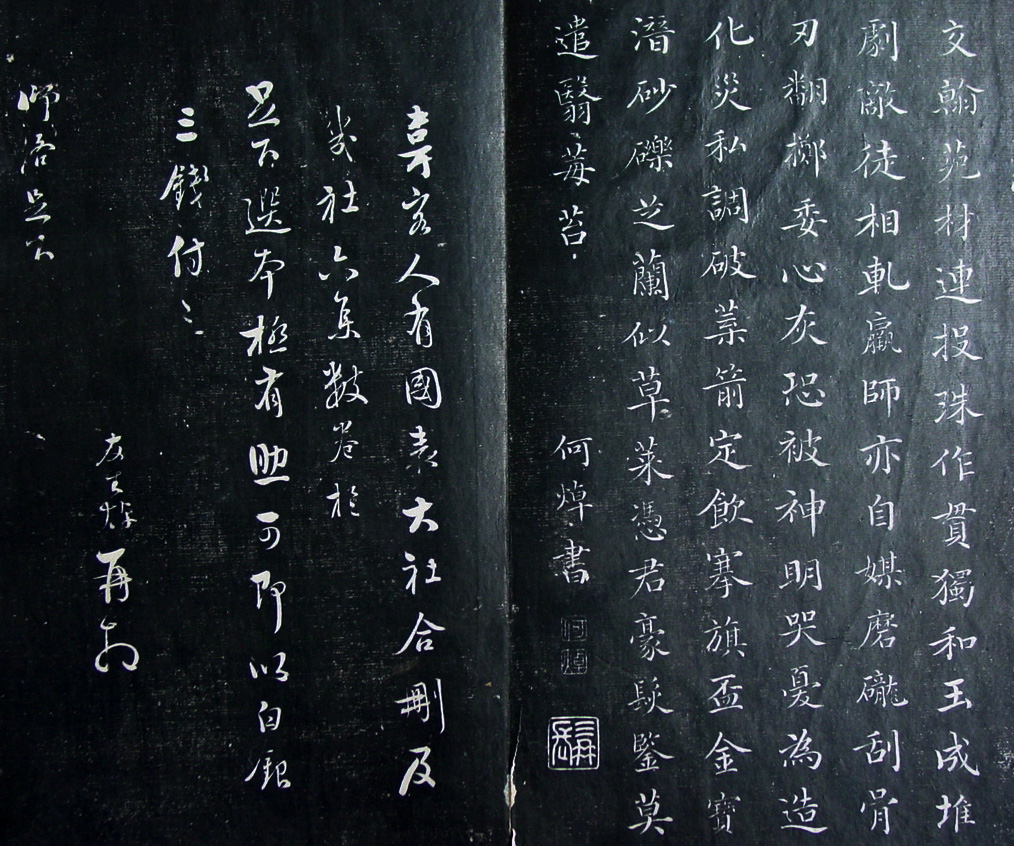 文翰苑材連投珠作貫獨和玉成堆
劇敵徒相軋羸師亦自媒磨礲刮骨
刃翻擲委心灰恐被神明哭憂為造
化災私調破葉箭定飲搴旗盃金寶
潛砂礫芝蘭似草萊憑君豪髮鑒莫
遣翳莓苔
何焯書
何焯
客人有國表大社合刪及
幾社六集數卷於
足下選本極有助可即以白銀
三錢付之
友焯再
足下